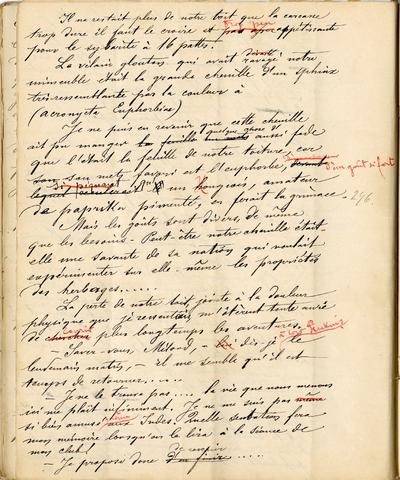 Il ne restait plus de notre toit que la carcasse
trop dure il faut le croire et trop peu appétissante
pour le sybarite à 16 pattes.
Le vilain glouton qui avait dévasté notre
immeuble était la grande chenille d'un sphinx
très ressemblante par la couleur à
(acronycta Euphorbiae)
Je ne puis en revenir que cette chenille
ait pu manger quelque chose d'aussi fade
que l'était la feuille de notre toiture, car
son mets favori est l'euphorbe, d'un goût si fort
si piquant qu'un hongrois, amateur
de paprika pimentés, en ferait la grimace 276.
Mais les goûts sont divers, de même
que les besoins. Peut-être notre chenille était-
elle une savante de sa nation qui voulait
expérimenter sur elle-même les propriétés
des herbages......
La perte de notre toit, jointe à la douleur
physique que je ressentais, m'ôtèrent toute envie
de courir plus longtemps les aventures.
- Savez-vous, Milord, - dis-je le
lendemain matin, - il me semble qu'il est
temps de retourner.....
- Je ne le trouve pas.... la vie que nous menons
ici me plaît infiniment. Je ne me suis pas
si bien amusé même aux Indes. Quelle sensation fera
mon mémoire lorsqu'on le lira à la séance de
mon club!
- Je propose donc de remplir .....